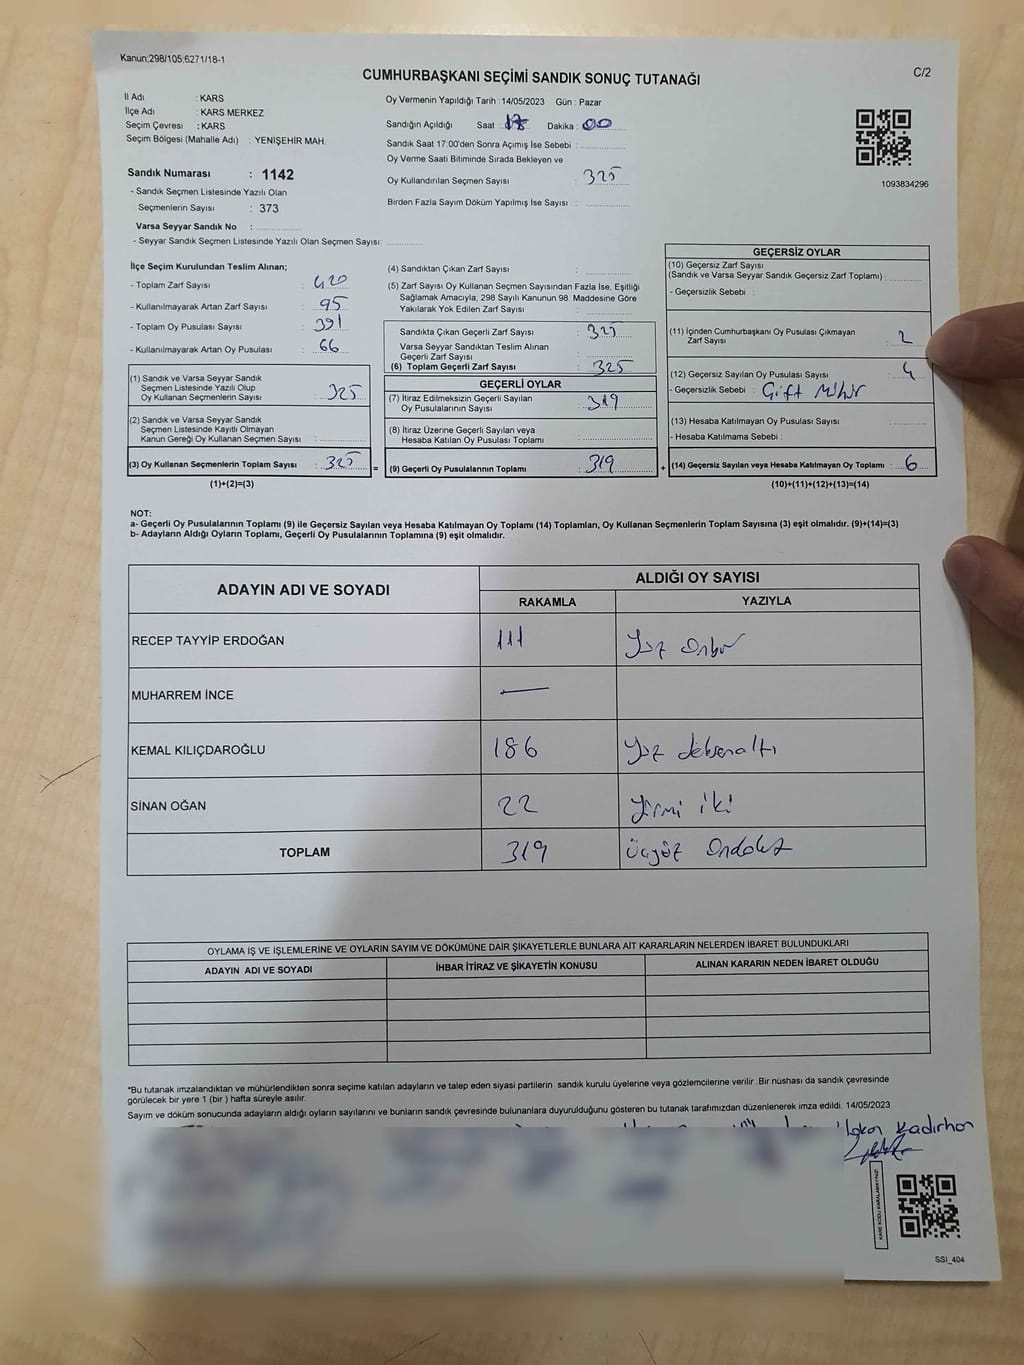 Kanun;298/105;6271/18-1
C/2
CUMHURBAŞKANI SEÇİMİ SANDIK SONUÇ TUTANAĞI
İl Adı : KARS
İlçe Adı : KARS MERKEZ
Seçim Çevresi : KARS
Seçim Bölgesi (Mahalle Adı) : YENİŞEHİR MAH.
Sandık Numarası : 1142
- Sandık Seçmen Listesinde Yazılı Olan
Seçmenlerin Sayısı : 373
Varsa Seyyar Sandık No :
- Seyyar Sandık Seçmen Listesinde Yazılı Olan Seçmen Sayısı:
Oy Vermenin Yapıldığı Tarih : 14/05/2023 Gün : Pazar
Sandığın Açıldığı Saat : Dakika : 00
Sandık Saat 17:00'den Sonra Açımış İse Sebebi :
Oy Verme Saati Bitiminde Sırada Bekleyen ve
Oy Kullandırılan Seçmen Sayısı : 325
Birden Fazla Sayım Döküm Yapılmış İse Sayısı :
1093834296
İlçe Seçim Kurulundan Teslim Alınan;
- Toplam Zarf Sayısı : 420
- Kullanılmayarak Artan Zarf Sayısı : 95
- Toplam Oy Pusulası Sayısı : 391
- Kullanılmayarak Artan Oy Pusulası : 66
(1) Sandık ve Varsa Seyyar Sandık
Seçmen Listesinde Yazılı Olup
Oy Kullanan Seçmenlerin Sayısı : 325
(2) Sandık ve Varsa Seyyar Sandık
Seçmen Listesinde Kayıtlı Olmayan
Kanun Gereği Oy Kullanan Seçmen Sayısı :
(3) Oy Kullanan Seçmenlerin Toplam Sayısı : 325
=
(1)+(2)=(3)
(4) Sandıktan Çıkan Zarf Sayısı :
(5) Zarf Sayısı Oy Kullanan Seçmen Sayısından Fazla İse, Eşitliği
Sağlamak Amacıyla; 298 Sayılı Kanunun 98. Maddesine Göre
Yakılarak Yok Edilen Zarf Sayısı :
Sandıkta Çıkan Geçerli Zarf Sayısı : 325
Varsa Seyyar Sandıktan Teslim Alınan
Geçerli Zarf Sayısı :
(6) Toplam Geçerli Zarf Sayısı : 325
GEÇERLİ OYLAR
(7) İtiraz Edilmeksizin Geçerli Sayılan
Oy Pusulalarının Sayısı : 319
(8) İtiraz Üzerine Geçerli Sayılan veya
Hesaba Katılan Oy Pusulası Toplamı :
(9) Geçerli Oy Pusulalarının Toplamı : 319
+
GEÇERSİZ OYLAR
(10) Geçersiz Zarf Sayısı
(Sandık ve Varsa Seyyar Sandık Geçersiz Zarf Toplamı) :
- Geçersizlik Sebebi :
(11) İçinden Cumhurbaşkanı Oy Pusulası Çıkmayan
Zarf Sayısı : 2
(12) Geçersiz Sayılan Oy Pusulası Sayısı : 4
- Geçersizlik Sebebi : Çift Mühür
(13) Hesaba Katılmayan Oy Pusulası Sayısı :
- Hesaba Katılmama Sebebi :
(14) Geçersiz Sayılan veya Hesaba Katılmayan Oy Toplamı : 6
(10)+(11)+(12)+(13)=(14)
NOT:
a- Geçerli Oy Pusulalarının Toplamı (9) ile Geçersiz Sayılan veya Hesaba Katılmayan Oy Toplamı (14) Toplamları, Oy Kullanan Seçmenlerin Toplam Sayısına (3) eşit olmalıdır. (9)+(14)=(3)
b- Adayların Aldığı Oyların Toplamı, Geçerli Oy Pusulalarının Toplamına (9) eşit olmalıdır.
ADAYIN ADI VE SOYADI
ALDIĞI OY SAYISI
RAKAMLA YAZIYLA
RECEP TAYYİP ERDOĞAN 111 Yüz Onbir
MUHARREM İNCE —
KEMAL KILIÇDAROĞLU 186 Yüz seksenaltı
SİNAN OĞAN 22 Yirmi iki
TOPLAM 319 Üçyüz Ondokuz
OYLAMA İŞ VE İŞLEMLERİNE VE OYLARIN SAYIM VE DÖKÜMÜNE DAİR ŞİKAYETLERLE BUNLARA AİT KARARLARIN NELERDEN İBARET BULUNDUKLARI
ADAYIN ADI VE SOYADI İHBAR İTİRAZ VE ŞİKAYETİN KONUSU ALINAN KARARIN NEDEN İBARET OLDUĞU
*Bu tutanak imzalandıktan ve mühürlendikten sonra seçime katılan adayların ve talep eden siyasi partilerin sandık kurulu üyelerine veya gözlemcilerine verilir .Bir nüshası da sandık çevresinde
görülecek bir yere 1 (bir ) hafta süreyle asılır.
Sayım ve döküm sonucunda adayların aldığı oyların sayılarını ve bunların sandık çevresinde bulunanlara duyurulduğunu gösteren bu tutanak tarafımızdan düzenlenerek imza edildi. 14/05/2023
Kadirhan
KARE KODU KARALAMAYINIZ!
SSI_404